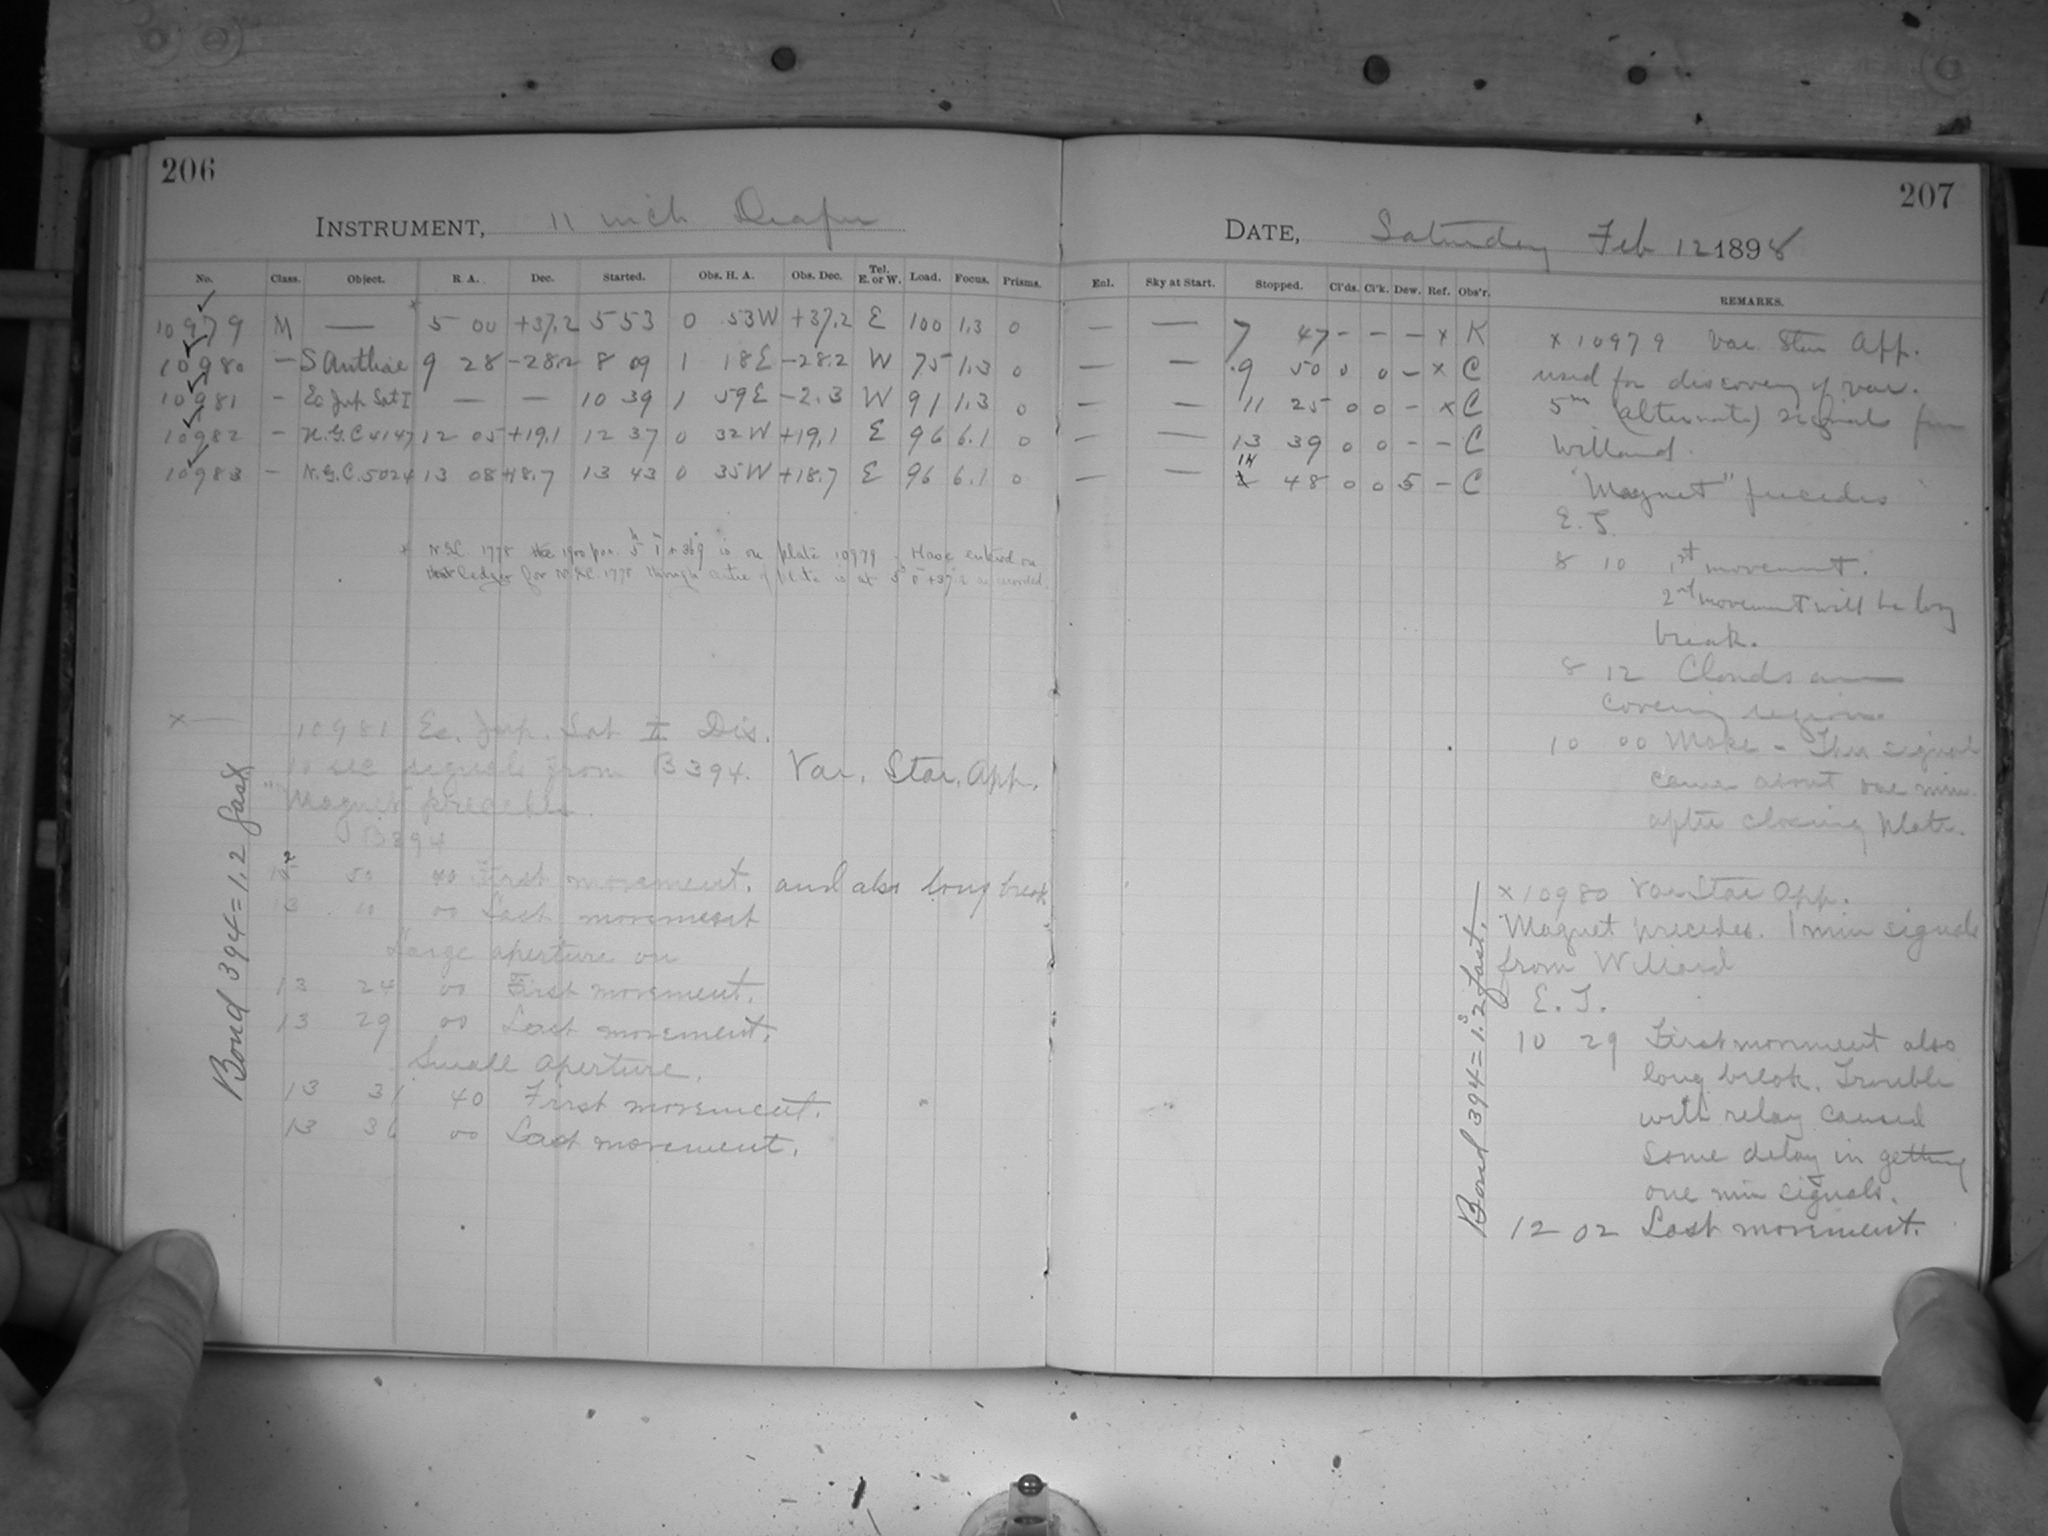 206
INSTRUMENT, 11 inch Draper
No. Class. Object. R. A. Dec. Started. Obs. H. A. Obs. Dec. Tel. E. or W. Load. Focus. Prisms.
10979 M — 5 00 +37.2 5 53 0 53W +37.2 E 100 1.3 0
10980 — S Antliae 9 28 -28.2 8 09 1 18E -28.2 W 75 1.3 0
10981 - Ec Jup. Sat I — — 10 39 1 59E -2.3 W 91 1.3 0
10982 - N.G.C 4147 12 05 +19.1 12 37 0 32W +19.1 E 96 6.1 0
10983 — N.G.C. 5024 13 08 +18.7 13 43 0 35W +18.7 E 96 6.1 0
N.G.C. 1778 1900 pos. 5h 1m +36°.9 is on plate 10979. Have entered on
ledger for N.G.C. 1778 though centre of plate is at 5h 0m +37.2 as recorded.
x— 10981 Ec. Jup. Sat I Dis.
10 sec signals from B394. Var. Star. App.
"Magnet" precedes.
B394
12 50 00 First movement. and also long break
13 00 00 Last movement
Large aperture on
13 24 00 First movement.
13 29 00 Last movement.
Small aperture.
13 31 40 First movement.
13 36 00 Last movement.
Bond 394 = 1.2 fast
207
DATE, Saturday Feb 12 1898
Enl. Sky at Start. Stopped. Cl'ds. Cl'k. Dew. Ref. Obs'r. REMARKS.
— — 7 47 - - - x K
— — 9 50 0 0 - x C
— — 11 25 0 0 - x C
— — 13 39 0 0 - - C
— — 14 48 0 0 5 - C
x 10979 Var. Star App.
used for discovery of var.
5m (alternate) signals from
Willard.
"Magnet" precedes
E. T.
8 10 1st movement.
2nd movement will be long
break.
8 12 Clouds are
covering region
10 00 Make - This signal
came about one min.
after closing plate.
x 10980 Var Star App.
Magnet precedes. 1 min signals
from Willard
E. T.
10 29 First movement also
long break. Trouble
with relay caused
some delay in getting
one min signals.
12 02 Last movement.
Bond 394 = 1.2s fast.